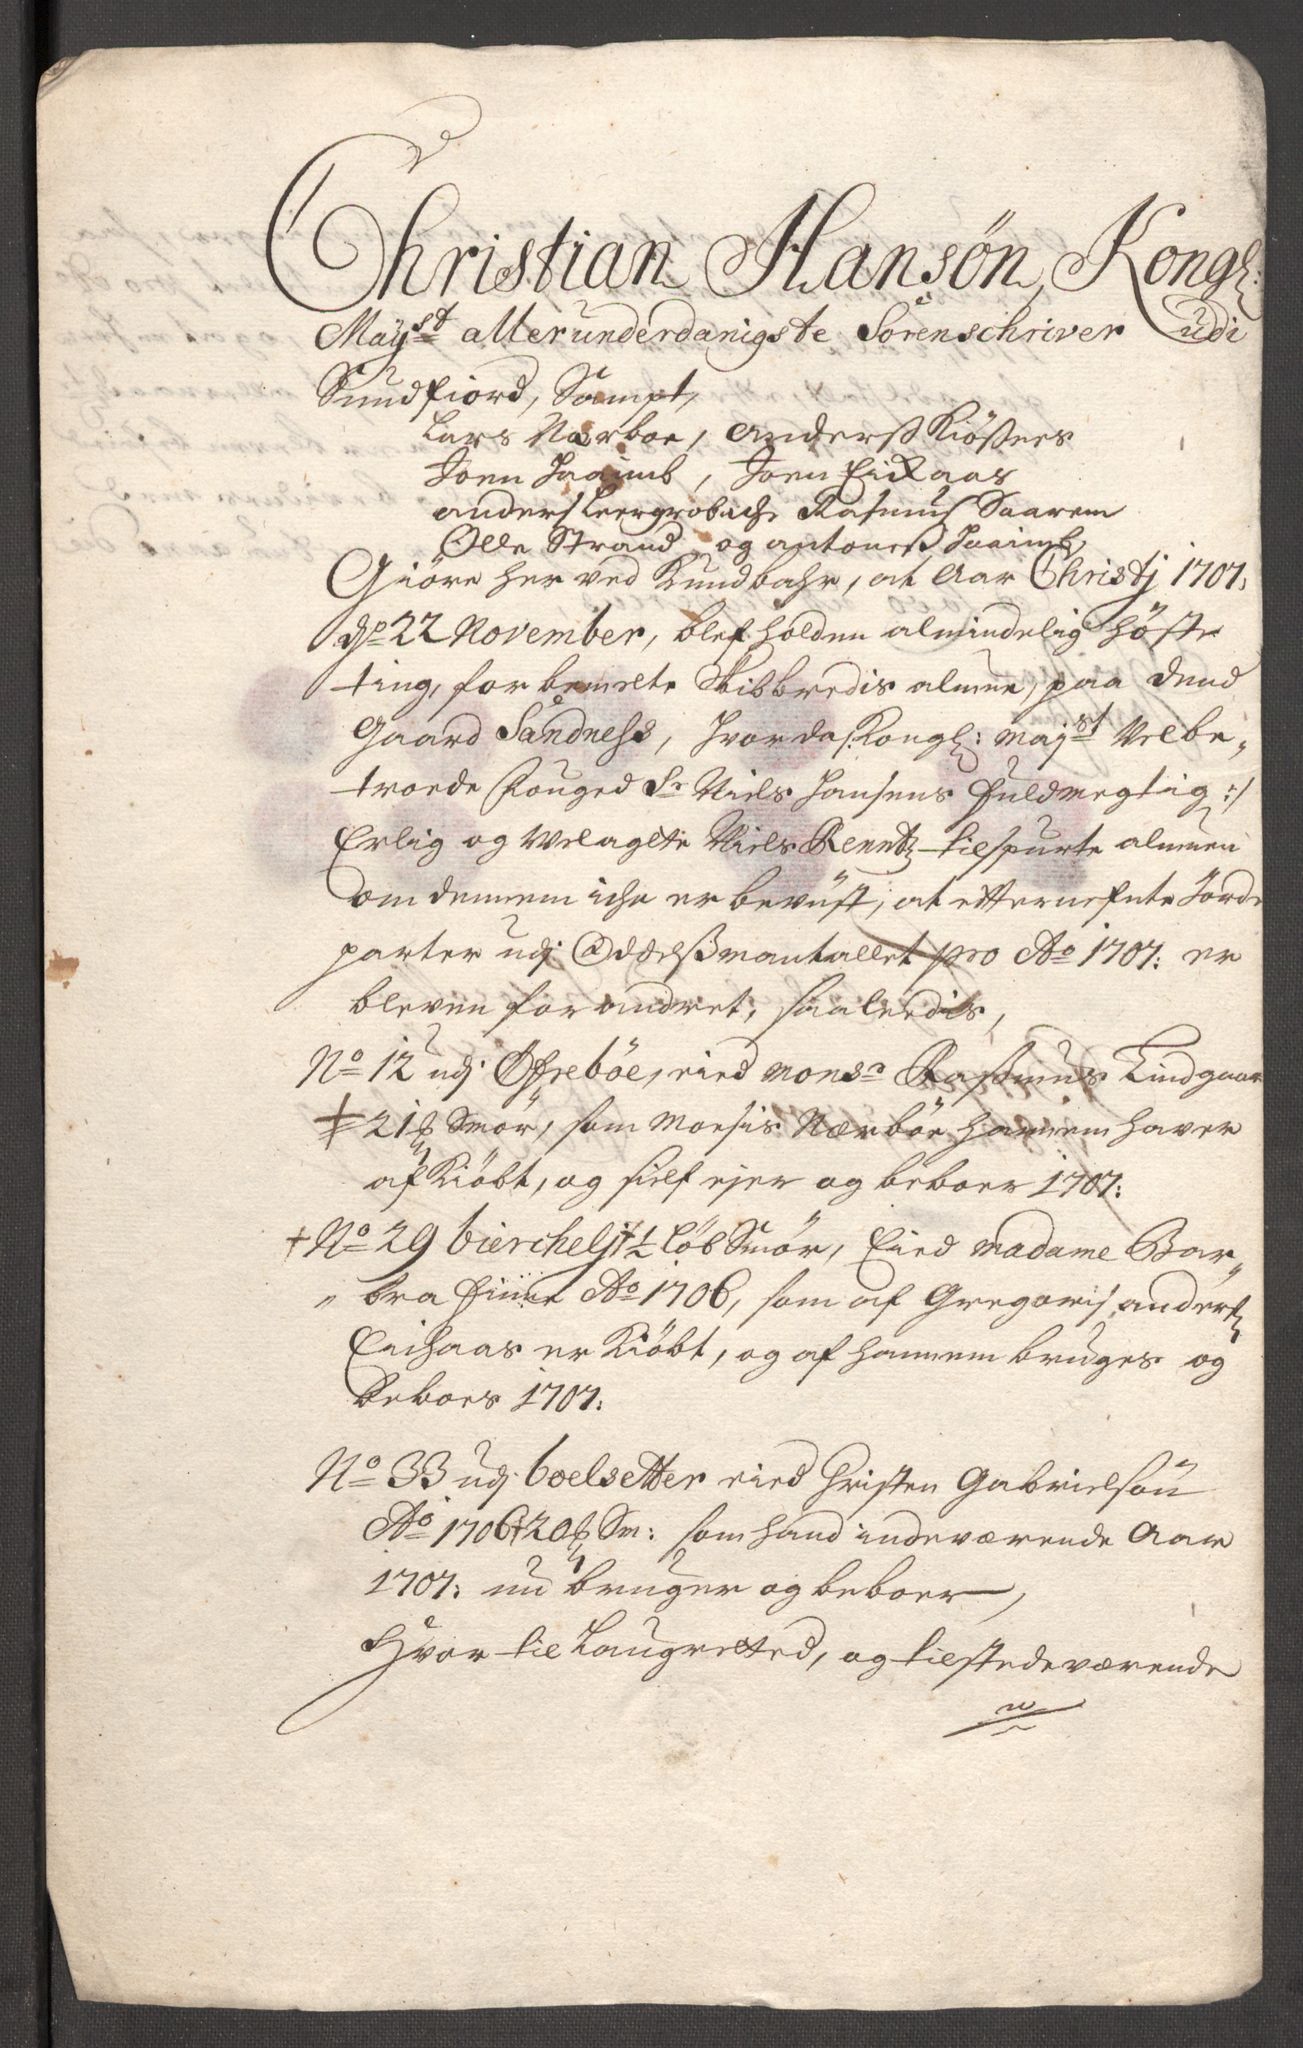 Christian Hansøn, Kongl:
Mayst allerunderdanigste Sorenschriver udi
Sundfiord, Sampt,
Lars Nærboe, Anderss Kiössnes
Joen Jaaimb, Joen Eichaas
anders Leergrobach Rasmus Saarem
Olle Strand og antoness Jaaimb,
Giöre her ved Kundbahr, at Aar Christj 1707:
dn 22 November, blef holden almindelig höste
ting, for bemelte Skibbredis almue, paa dend
Gaard Såndness, hvor da Kongl: mayst Velbe„
troede Fouged Sr Niels Jansens Fuldmegtig :/
Erlig og Velagte Niels Rentz tilspurte almuen
om dennem iche er bevüst, at efternefnte Jorde
parter udj Oddelssmantallet pro Ao 1707: er
bleven forandret, saaledis,
No 12 udj Öfreböe, eied Monsr Rassmus Lindgaar
21 Smör, som Moesis Nærböe hannem haver
af Kiöbt, og sielf ejer og beboer 1707:
No 29 bierchelj 1½ Löb Smör, Eied Madame Bar„
„ bra Finne Ao 1706, som af Gregoris anders
Eichaas er Kiöbt, og af hannem bruges og
beboes 1707:
No 33 udj boelsetter eied Christen Gabrielsön
Ao 1706 20 Sm: som hand indeværende Aar
1707: nu bruger og beboer,
Hvor til Laugretted, og tilstedeværende